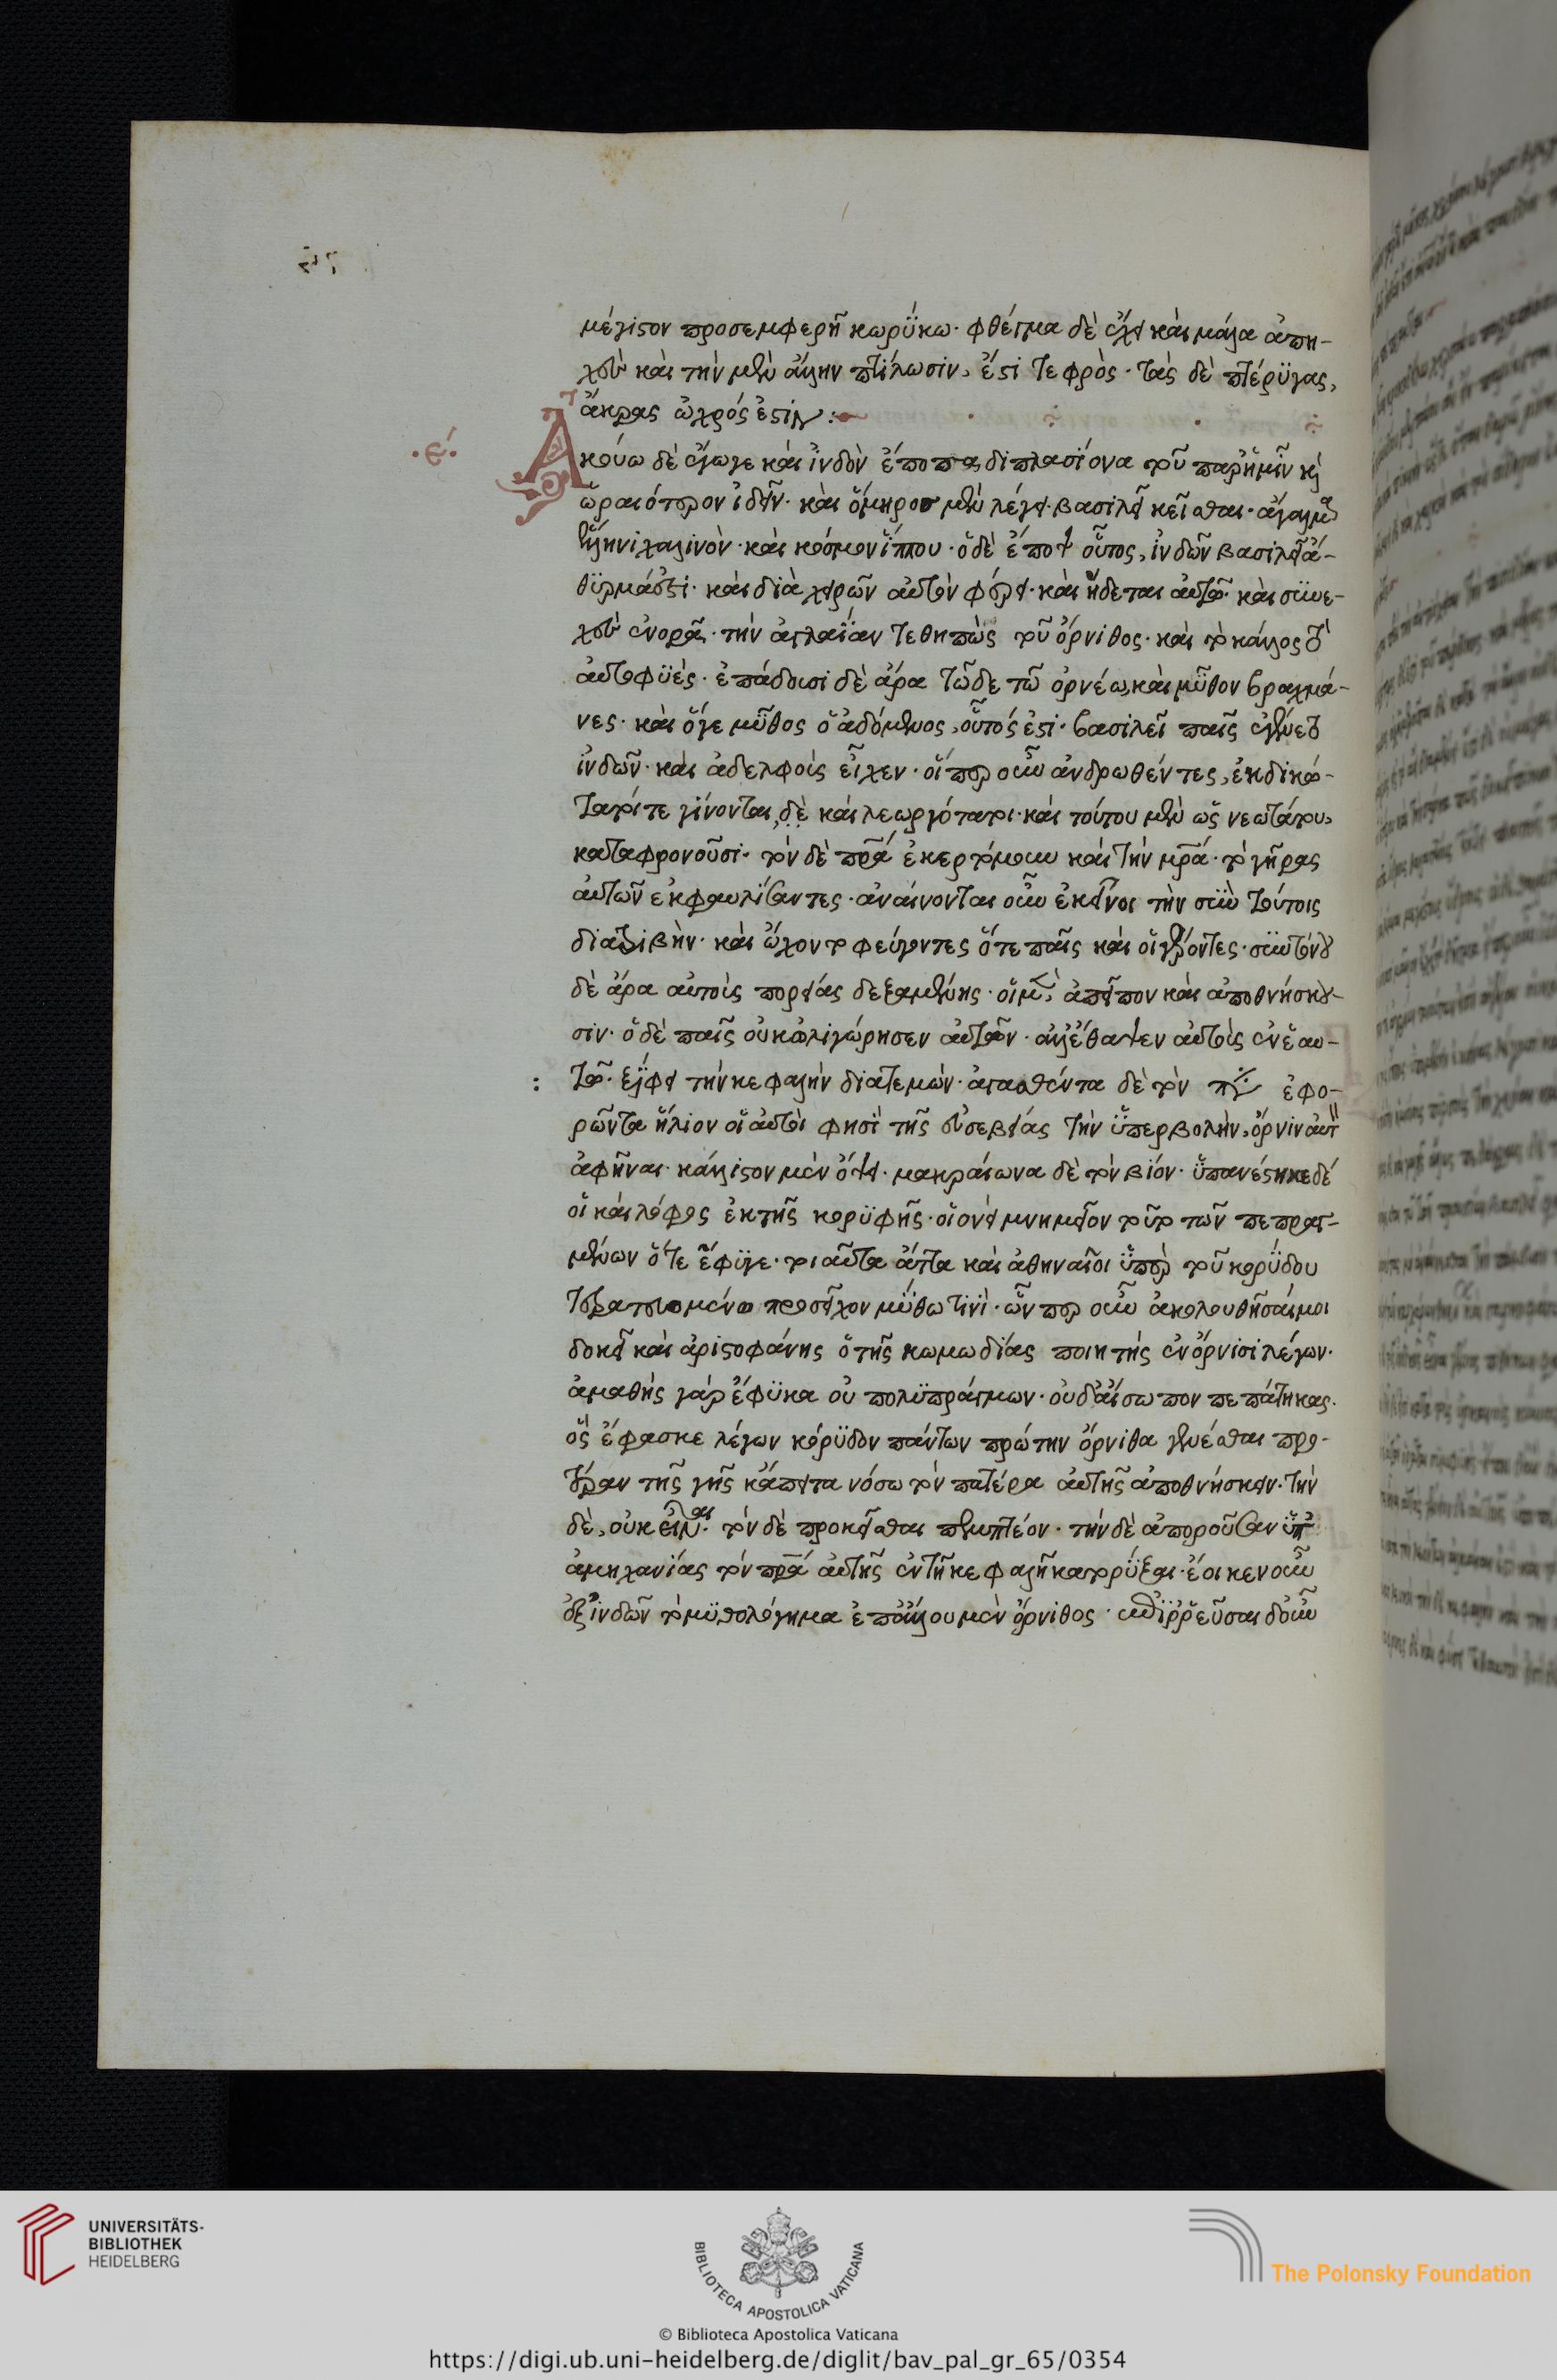 μέγιστον προσεμφερῆ κωρύκω· φθέγμα δὲ ἔχει καὶ μάλα ἀπη-
χές· καὶ τὴν μὲν ἄλλην πτίλωσιν, ἔστι τεφρὸς· τὰς δὲ πτέρυγας,
ἄκρας ὠχρός ἐστιν:
·ε΄·
Ἀκούω δὲ ἔγωγε καὶ ἰνδὸν ἔποπα διπλασίονα τοῦ παρ' ἡμῖν κὶ
ὡραιότερον ἰδεῖν· καὶ ὅμηρος μὲν λέγει· βασιλεῖ κεῖσθαι· ἄγαλμα
ἑλληνι χαλινὸν· καὶ κόσμον ἵππου· ὁ δὲ ἔποψ οὗτος, ἰνδῶν βασιλεῖ ἄ-
θυρμά ἐστι· καὶ διὰ χειρῶν αὐτὸν φέρει· καὶ ἥδεται αὐτῶ· καὶ συνε-
χὲς ἐνορᾶ· τὴν ἀγλαΐαν τεθηπὼς τοῦ ὄρνιθος· καὶ τὸ κάλλος τὸ
αὐτοφυὲς· ἐπάδουσι δὲ ἄρα τῶδε τῶ ὀρνέω, καὶ μῦθον βραχμᾶ-
νες· καὶ ὅγε μῦθος ὁ ἀδόμενος, οὗτός ἐστι· βασιλεῖ παῖς ἐγένετο
ἰνδῶν· καὶ ἀδελφοὺς εἶχεν· οἵπερ οὖν ἀνδρωθέντες, ἐκδικώ-
τατοί τε γίνονται, δὲ καὶ λεωργότατοι· καὶ τούτου μὲν ὡς νεωτάτου,
καταφρονοῦσι· τὸν δὲ πρᾱ́ ἐκερτόμουν καὶ τὴν μρᾱ́· τὸ γῆρας
αὐτῶν ἐκφαυλίσαντες· ἀναίνονται οὖν ἐκεῖνοι τὴν σὺν τούτοις
διατριβὴν· καὶ ὤχοντο φεύγοντες ὅτε παῖς καὶ οἱ γέροντες· συντόνου
δὲ ἄρα αὐτοὺς πορείας δεξαμένης· οἱ μὲν, ἀπεῖπον καὶ ἀποθνήσκου-
σιν· ὁ δὲ παῖς οὐκ ὠλιγώρησεν αὐτῶν· ἀλλ' ἔθαψεν αὐτοὺς ἐν ἑαυ-
τῶ· ξίφει τὴν κεφαλὴν διατεμών· ἀγασθέντα δὲ τὸν πάντ' ἐφο-
ρῶντα ἥλιον οἱ αὐτοί φησὶ τῆς εὐσεβείας τὴν ὑπερβολὴν, ὄρνιν αὐτὸν
ἀφῆναι· κάλλιστον μὲν ὄψει· μακραίωνα δὲ τὸν βίον· ὑπανέστηκε δέ
οἱ καὶ λόφος ἐκ τῆς κορυφῆς· οἱονεὶ μνημεῖον τοῦτο τῶν πεπραγ-
μένων ὅτε ἔφυγε· τοιαῦτα ἄττα καὶ ἀθηναῖοι ὑπὲρ τοῦ κορύδου
τερατευόμενοι προσεῖχον μύθω τινὶ· ὧνπερ οὖν ἀκολουθῆσαί μοι
δοκεῖ καὶ ἀριστοφάνης ὁ τῆς κωμωδίας ποιητής ἐν ὄρνισι λέγων·
ἀμαθὴς γὰρ ἔφυκα οὐ πολυπράγμων· οὐδ' αἴσωπον πεπάτηκας·
ὃς ἔφασκε λέγων κόρυδον πάντων πρώτην ὄρνιθα γενέσθαι προ-
τέραν τῆς γῆς κἄπειτα νόσω τὸν πατέρα αὐτῆς ἀποθνήσκειν· τὴν
δὲ, οὐκ εἶναι· τὸν δὲ προκεῖσθαι πεμπτέον· τὴν δὲ ἀποροῦσαν ὑπ'
ἀμηχανίας τὸν πρᾱ́ αὐτῆς ἐν τῆ κεφαλῆ κατορύξαι· ἔοικεν οὖν
ἐξ ἰνδῶν τὸ μυθολόγημα ἐπ' ἄλλου μὲν ὄρνιθος· ἐπιρρεῦσαι δ' οὖν
UNIVERSITÄTS-
BIBLIOTHEK
HEIDELBERG
BIBLIOTECA APOSTOLICA VATICANA
The Polonsky Foundation
© Biblioteca Apostolica Vaticana
https://digi.ub.uni-heidelberg.de/diglit/bav_pal_gr_65/0354